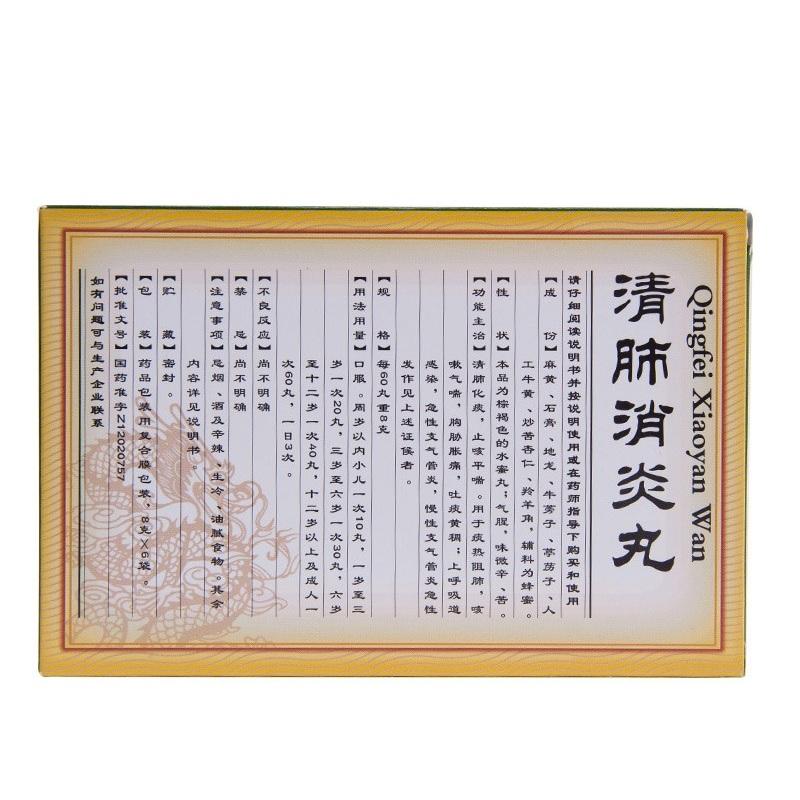 清肺消炎丸
Qingfei Xiaoyan Wan
请仔细阅读说明书并按说明使用或在药师指导下购买和使用
【成 份】麻黄、石膏、地龙、牛蒡子、葶苈子、人
工牛黄、炒苦杏仁、羚羊角，辅料为蜂蜜。
【性 状】本品为棕褐色的水蜜丸；气腥，味微辛、苦。
【功能主治】清肺化痰，止咳平喘。用于痰热阻肺，咳
嗽气喘，胸胁胀痛，吐痰黄稠；上呼吸道
感染，急性支气管炎，慢性支气管炎急性
发作见上述证候者。
【规 格】每60丸重8克
【用法用量】口服。周岁以内小儿一次10丸，一岁至三
岁一次20丸，三岁至六岁一次30丸，六岁
至十二岁一次40丸，十二岁以上及成人一
次60丸，一日3次。
【不良反应】尚不明确
【禁 忌】尚不明确
【注意事项】忌烟、酒及辛辣、生冷、油腻食物。其余
内容详见说明书。
【贮 藏】密封。
【包 装】药品包装用复合膜包装，8克×6袋。
【批准文号】国药准字Z12020757
如有问题可与生产企业联系